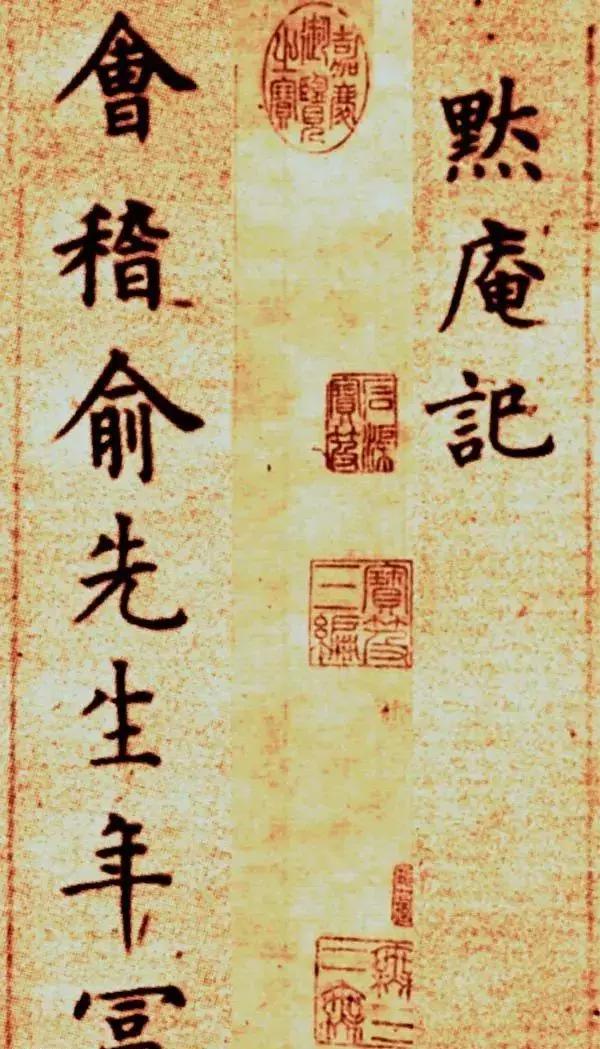 默庵記
嘉慶
御覽
之寶
石渠
寶笈
寶笈
三編
會稽俞先生年富